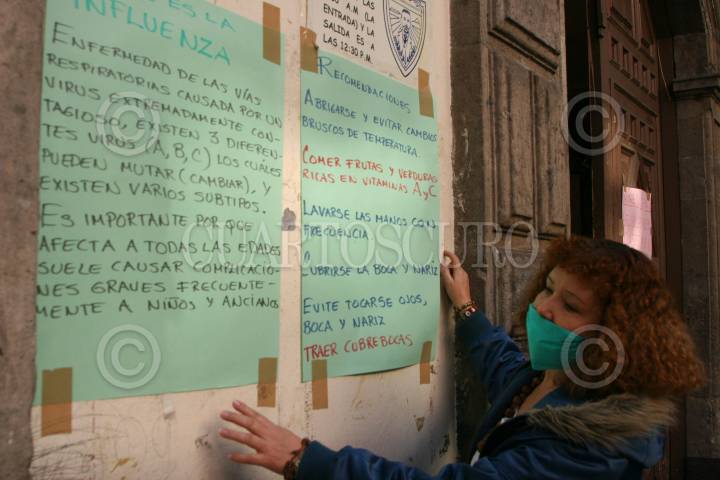 ES LA
INFLUENZA
ENFERMEDAD DE LAS VÍAS
RESPIRATORIAS CAUSADA POR UN
VIRUS EXTREMADAMENTE CON-
TAGIOSO, EXISTEN 3 DIFEREN-
TES VIRUS (A, B, C) LOS CUALES
PUEDEN MUTAR (CAMBIAR), Y
EXISTEN VARIOS SUBTIPOS.
ES IMPORTANTE POR QUE
AFECTA A TODAS LAS EDADES
SUELE CAUSAR COMPLICACIO-
NES GRAVES FRECUENTE-
MENTE A NIÑOS Y ANCIANOS
A.M (LA
ENTRADA) Y LA
SALIDA ES A
LAS 12:30 P.M.
RECOMENDACIONES
ABRIGARSE Y EVITAR CAMBIOS
BRUSCOS DE TEMPERATURA
COMER FRUTAS Y VERDURAS
RICAS EN VITAMINAS A Y C
LAVARSE LAS MANOS CON
FRECUENCIA
CUBRIRSE LA BOCA Y NARIZ
EVITE TOCARSE OJOS,
BOCA Y NARIZ
TRAER CUBREBOCAS
CUARTOSCURO